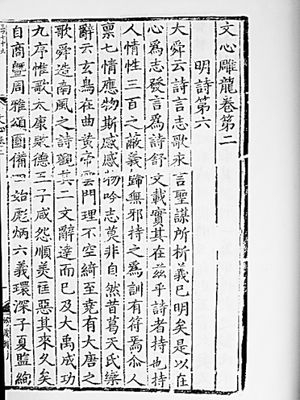 文心雕龍卷第二
明詩第六
大舜云詩言志歌永言聖謀所析義已明矣是以在
心爲志發言爲詩舒文載實其在茲乎詩者持也持
人情性三百之蔽義歸無邪持之爲訓有符焉尒人
稟七情應物斯感感物吟志莫非自然昔葛天氏樂
辭云玄鳥在曲黃帝雲門理不空綺至堯有大唐之
歌舜造南風之詩觀其二文辭達而已及大禹成功
九序惟歌太康敗德五子咸怨順美匡惡其來久矣
自商曁周雅頌圓備四始彪炳六義環深子夏監絢